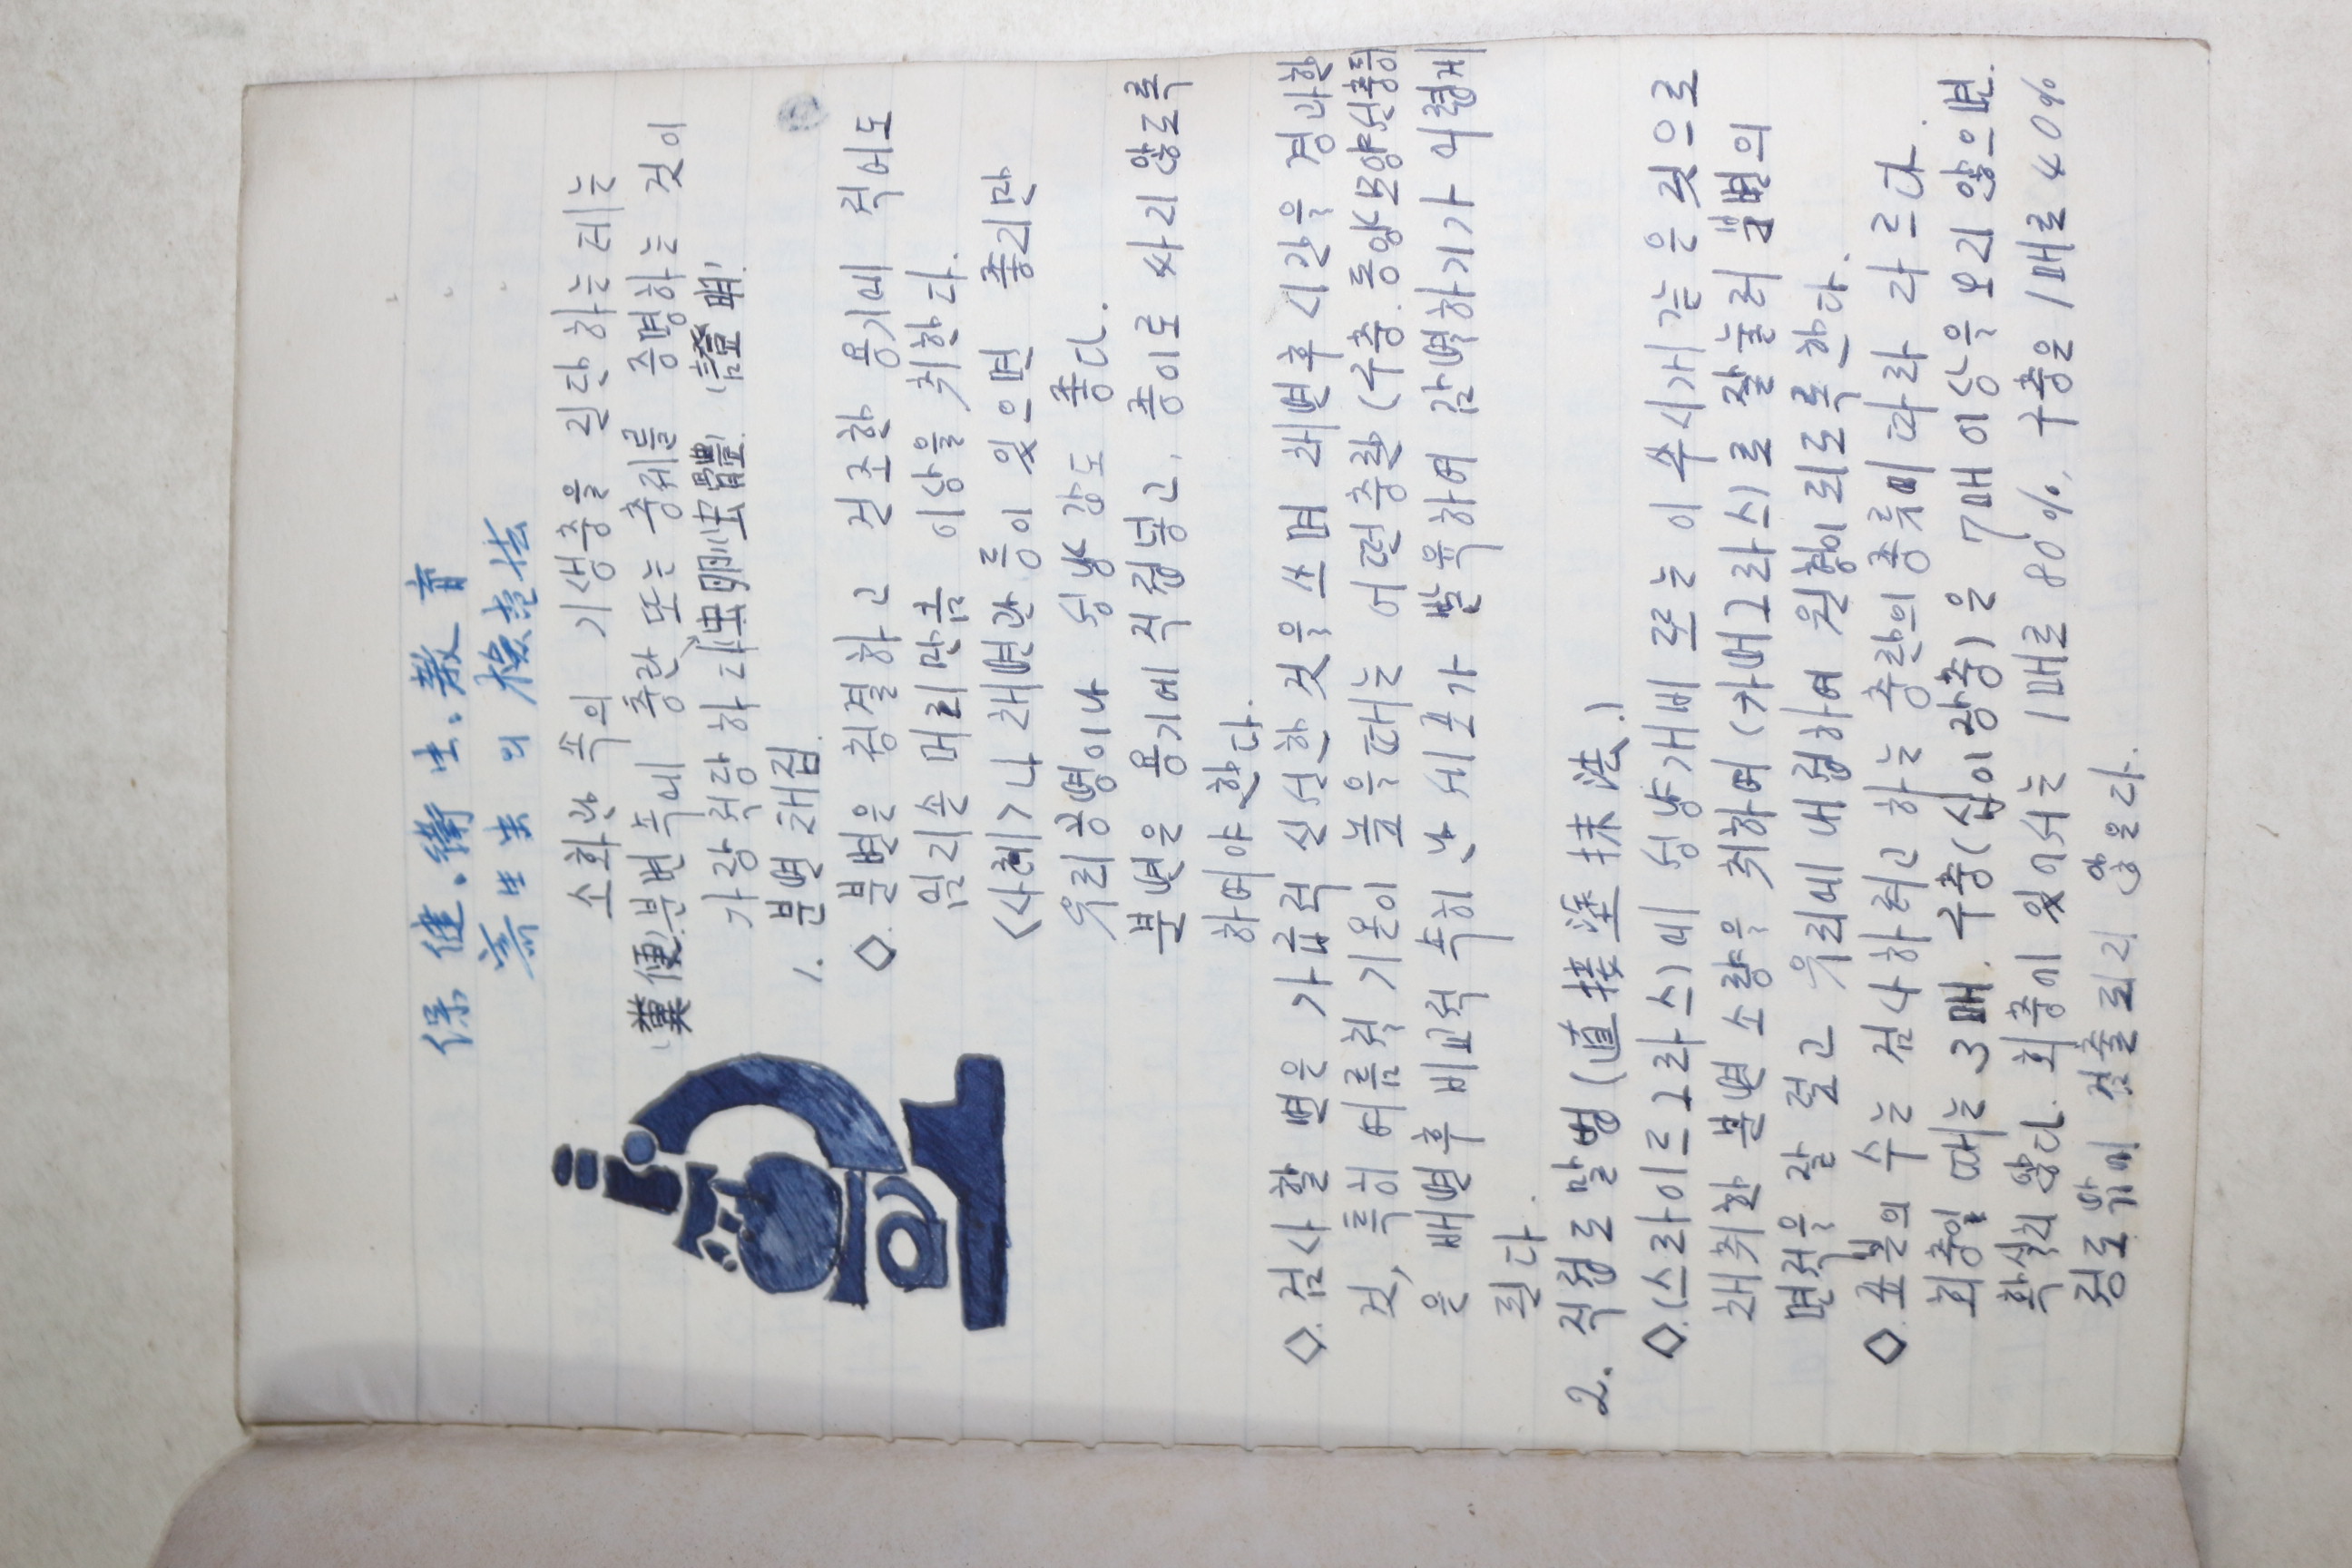 保健.衛生.敎育
寄生虫의 檢査法
소화관 속의 기생충을 진단하는데는
(糞便)분변속에 충란 또는 충체를 증명하는 것이
가장 적당하다(虫卵)(虫體) (證明)
1. 분변 채집.
◇. 분변은 청결하고 건조한 용기에 적어도
엄지손 머리만큼 이상을 취한다.
<사례>나 채변관 등이 있으면 좋지만
유리공병이나 성냥갑도 좋다.
분변은 용기에 직접넣고, 종이로 싸지 않도록
하여야 한다.
◇. 검사할 변은 가급적 신선한 것을 쓰며 채변후 시간을 경과한
것, 특히 여름철 기온이 높을때는 어떤충란 (구충. 동양모양선충등
은 배변후 비교적 속히 난세포가 발육하여 감별하기가 어렵게
된다.
2. 직접도말법(直接塗抹法.)
◇.(스라이드그라스)에 성냥개비 또는 이쑤시개 같은 것으로
채취한 분변 소량을 취하여 (카버그라스)로 잘눌러 분변의
면적을 잘 넓고 유리에 내접하여 원형이 되도록 한다.
◇. 표본의 수는 검사하려고 하는 충란의 종류에 따라 다르다.
회충일 때는 3매. 구충(십이장충)은 7매 이상을 보지 않으면.
확실치 않다. 회충에 있어서는 1매로 80%, 구충은 1매로 40%
정도 밖에 검출되지 않은다.